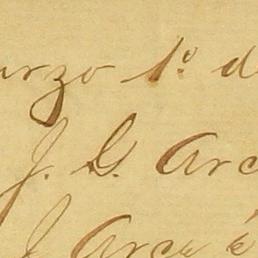 urzo 1º d
J. G. Arc
J Arce é